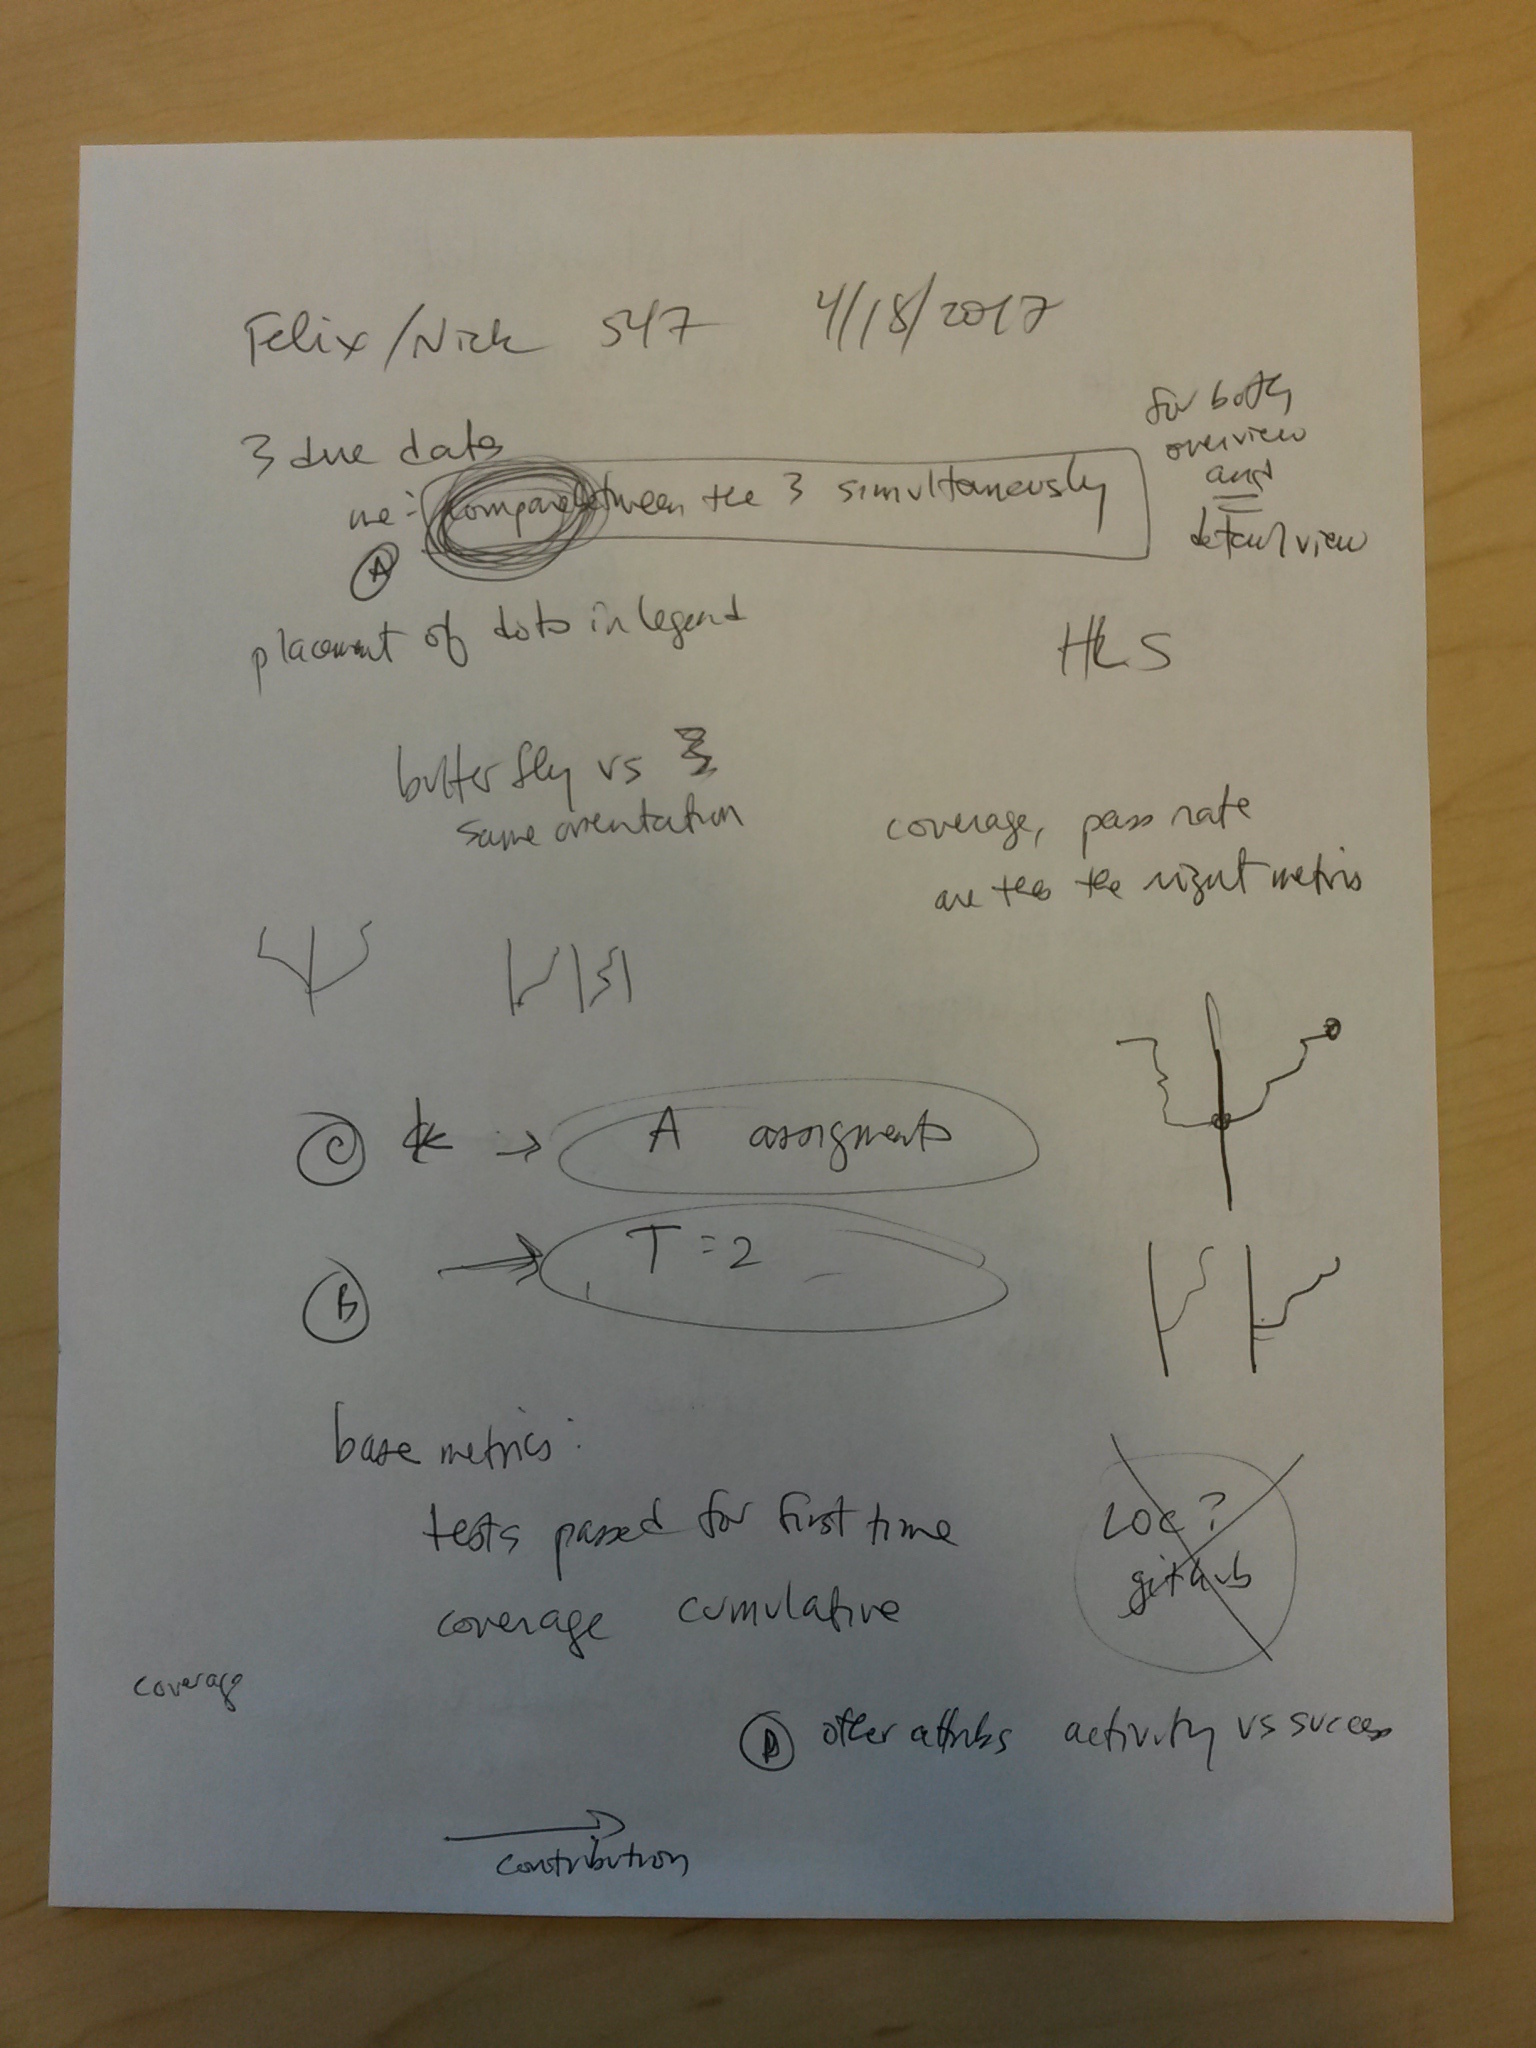 Felix/Nick 547 4/18/2017
3 due dates
me: compare between the 3 simultaneously
for both
overview
and
detail view
A
placement of dots in legend
HLS
butterfly vs
same orientation
coverage, pass rate
are ths the right metrics
C → A assigments
B → T = 2
base metrics:
tests passed for first time
coverage cumulative
LOC?
github
coverage
D other attribs activity vs success
→
contribution